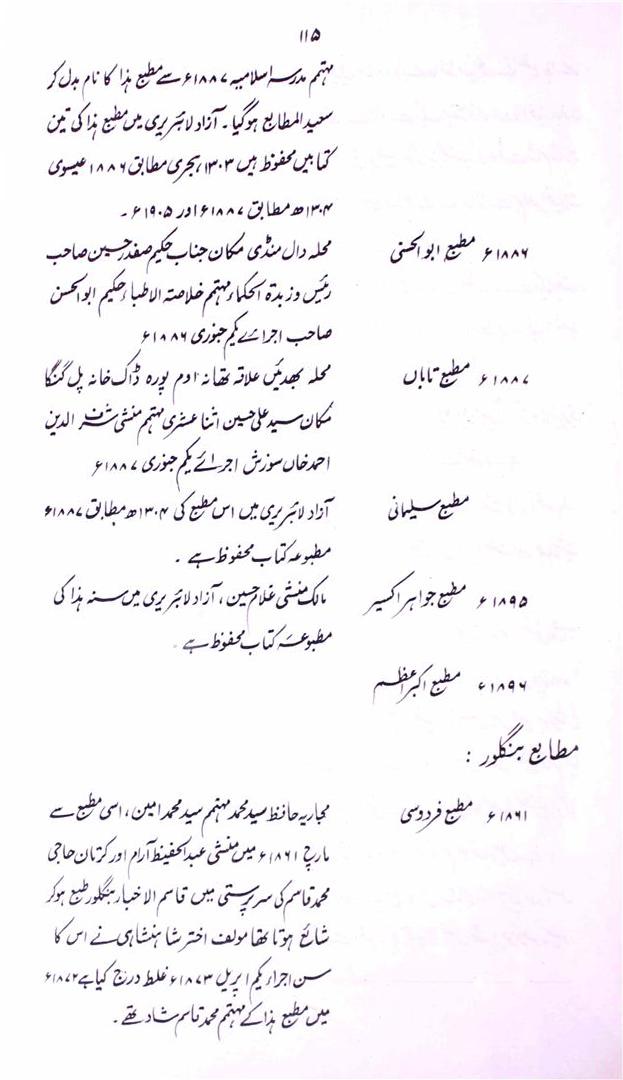 ۱۱۵
مہتمم مدرسہ اسلامیہ ۱۸۸۷ء سے مطبع ہذا کا نام بدل کر
سعید المطابع ہوگیا۔ آزاد لائبریری میں مطبع ہذا کی تین
کتابیں محفوظ ہیں ۱۳۰۳ ہجری مطابق ۱۸۸۶ عیسوی
۱۳۰۴ھ مطابق ۱۸۸۷ء اور ۱۹۰۵ء ۔
۱۸۸۶ء مطبع ابوالحسنی محلہ دال منڈی مکان جناب حکیم صفدر حسین صاحب
رئیس و زبدۃ الحکماء مہتمم خلاصتہ الاطباء حکیم ابوالحسن
صاحب اجرائے یکم جنوری ۱۸۸۶ء
۱۸۸۷ء مطبع تاباں محلہ بھدئیں علاقہ تھانہ ادم پورہ ڈاک خانہ پل گنگا
مکان سید علی حسین اثنا عشری مہتمم منشی شرف الدین
احمد خاں سوزش اجرائے یکم جنوری ۱۸۸۷ء
مطبع سلیمانی آزاد لائبریری میں اس مطبع کی ۱۳۰۴ھ مطابق ۱۸۸۷ء
مطبوعہ کتاب محفوظ ہے ۔
۱۸۹۵ء مطبع جواہر اکسیر مالک منشی غلام حسین، آزاد لائبریری میں سنہ ہذا کی
مطبوعہ کتاب محفوظ ہے ۔
۱۸۹۶ء مطبع اکبر اعظم
مطابع بنگلور :
۱۸۶۱ء مطبع فردوسی مجاریہ حافظ سید محمد مہتمم سید محمد امین، اسی مطبع سے
مارچ ۱۸۶۱ء میں منشی عبدالحفیظ آرام اور کپتان حاجی
محمد قاسم کی سرپرستی میں قاسم الاخبار بنگلور طبع ہوکر
شائع ہوتا تھا مولف اختر شاہنشاہی نے اس کا
سن اجراء یکم اپریل ۱۸۷۳ء غلط درج کیا ہے ۱۸۷۲ء
میں مطبع ہذا کے مہتمم محمد قاسم شاد تھے ۔